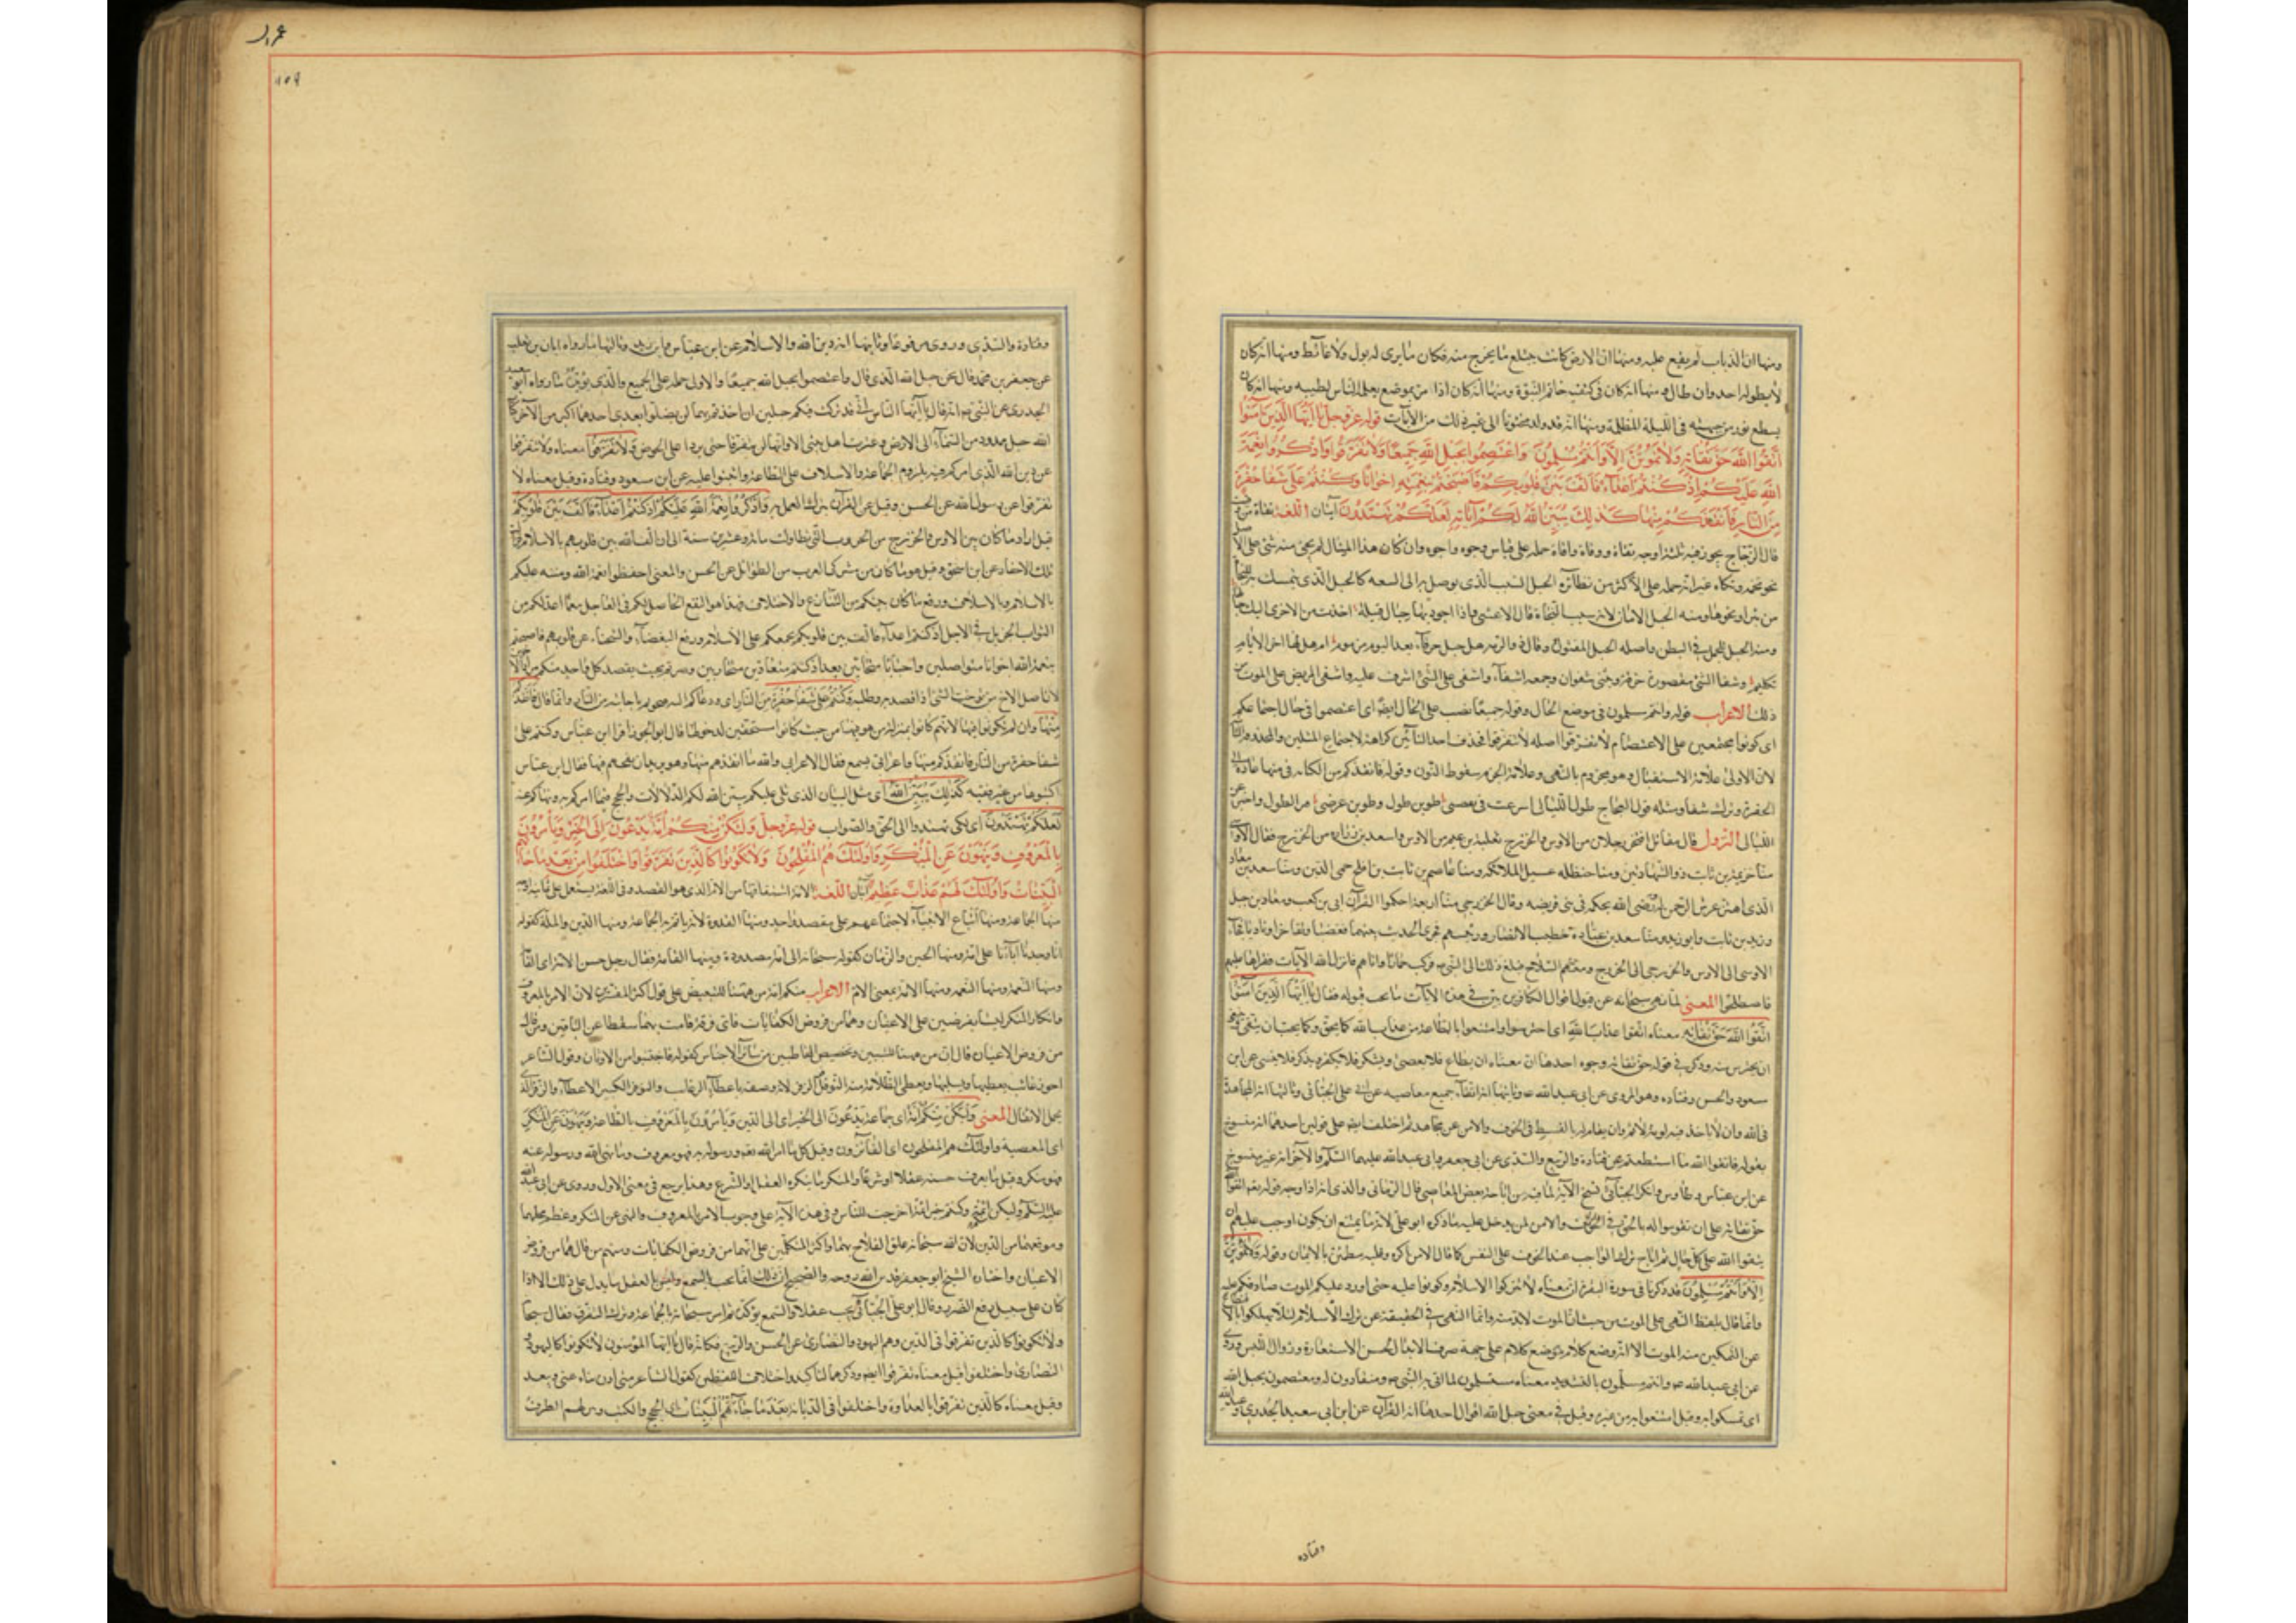 ومنها ان الذباب لم يقع عليه ومنها ان الارض كانت تبتلع ما يخرج منه فكان ما يرى له بول ولا غائط ومنها انه كان
لا يطوله احد وان طال ومنها انه كان في كتفه خاتم النبوة ومنها انه كان اذا مر بموضع يعلم الناس لطيبه ومنها انه كان
يسطع نور من جبهته في الليلة المظلمة ومنها انه قد ولد مختونا الى غير ذلك من الآيات قوله عز وجل يا ايها الذين آمنوا
اتقوا الله حق تقاته ولا تموتن الا وانتم مسلمون واعتصموا بحبل الله جميعا ولا تفرقوا واذكروا نعمة
الله عليكم اذ كنتم اعداء فالف بين قلوبكم فاصبحتم بنعمته اخوانا وكنتم على شفا حفرة
من النار فانقذكم منها كذلك يبين الله لكم آياته لعلكم تهتدون آيتان اللغة تقاة من
قال الزجاج يجوز فيه ثلثة اوجه تقاة ووقاة واقاة حمله على قياس وجوه واجوه وان كان هذا المثال لم يجئ منه شئ على الاصل
نحو تخمة وتكاة غير انه حمله على الاكثر من نظائره الحبل السبب الذي يوصل به الى البغية كالحبل الذي يتمسك به للنجاة
من بئر او نحوها ومنه الحبل الامان لانه سبب النجاة قال الاعشى واذا تجوزها حبال قبيلة اخذت من الاخرى اليك حبالها
ومنه الحبل للحمل في البطن واصله الحبل المفتول وقال ذو الرمة هل حبل خرقاء بعد اليوم مرموم ام هل لها آخر الايام
تكليم وشفا الشئ مقصورة حرفه ويثنى شفوان وجمعه اشفاء واشفى على الشئ اشرف عليه واشفى المريض على الموت من
ذلك الاعراب قوله وانتم مسلمون في موضع الحال وقوله جميعا نصب على الحال ايضا اى اعتصموا في حال اجتماعكم
اى كونوا مجتمعين على الاعتصام لا تفرقوا اصله لا تتفرقوا فحذف احد التائين كراهة لاجتماع المثلين والمحذوفة الثانية
لان الاولى علامة الاستقبال وهو مجزوم بالنهى وعلامة الجزم سقوط النون وقوله فانقذكم منها الكناية في منها عادت الى
الحفرة وترك شفا ومثله قول العجاج طول الليالى اسرعت في نقضى طوين طولى وطوين عرضى من الطول واخبر عن
الليالى النزول قال مقاتل افتخر رجلان من الاوس والخزرج ثعلبة بن غنم من الاوس واسعد بن زرارة من الخزرج فقال الاوسى
منا خزيمة بن ثابت ذو الشهادتين ومنا حنظلة غسيل الملائكة ومنا عاصم بن ثابت بن افلح حمى الدين ومنا سعد بن معاذ
الذي اهتز عرش الرحمن له ورضى الله بحكمه في بنى قريضه وقال الخزرجى منا اربعة احكموا القرآن ابى بن كعب ومعاذ بن جبل
وزيد بن ثابت وابو زيد ومنا سعد بن عبادة خطيب الانصار ورئيسهم فجرى الحديث بينهما فغضبا وتفاخرا وناديا فجاء
الاوسى الى الاوس والخزرجى الى الخزرج ومعهم السلاح فبلغ ذلك الى النبى ص فركب حمارا واتاهم فانزل الله الآيات فقراها عليهم
فاصطلحوا المعنى لما نهى سبحانه عن قبول اقوال الكافرين بين في هذه الآيات ما يجب قبوله فقال يا ايها الذين آمنوا
اتقوا الله حق تقاته معناه اتقوا عذاب الله اى احترسوا وامتنعوا بالطاعة من عذاب الله كما يحق وكما يجب ان يتقى ينبغى
ان يحترس منه وذكر في قوله حق تقاته وجوه احدها ان معناه ان يطاع فلا يعصى ويشكر فلا يكفر ويذكر فلا ينسى عن ابن
سعود والحسن وقتاده وهو المروى عن ابى عبد الله ع وثانيها انه اتقاء جميع معاصيه عن ابى على الجبائى وثالثها انه المجاهدة
في الله وان لا تاخذه فيه لومة لائم وان يقام له بالقسط في الخوف والامن عن مجاهد ثم اختلف ايضا على قولين احدهما انه منسوخ
بقوله فاتقوا الله ما استطعتم عن قتادة والربيع والسدى عن ابى جعفر وابى عبد الله عليهما السلام والآخر انه غير منسوخ
عن ابن عباس وطاوس وانكر الجبائى نسخ الآية لما فيه من اباحة بعض المعاصى قال الرمانى والذى انه اذا وجه قوله اتقوا الله
حق تقاته على ان تقوموا له بالحق في الخوف والامن لم يدخل عليه ما ذكره ابو على لانه ما يمتنع ان يكون اوجب عليهم ان
يتقوا الله على كل حال ثم اباح ترك الواجب عند الخوف على النفس كما قال الا من اكره وقلبه مطمئن بالايمان وقوله ولا تموتن
الا وانتم مسلمون قد ذكرنا في سورة البقرة ان معناه لا تتركوا الاسلام وكونوا عليه حتى اذا ورد عليكم الموت صادفكم عليه
وانما قال بلفظ النهى على الموت من حيث ان الموت لا بد منه وانما النهى في الحقيقة عن ترك الاسلام لئلا يهلكوا
عن التمكين منه الموت الا انه وضع كلام موضع كلام على جهة صرف الابدال لحسن الاستعارة وزوال اللبس وروى
عن ابى عبد الله ص وانتم مسلمون بالتشديد معناه مستسلمون لما اتى به النبى ص ومنقادون له واعتصموا بحبل الله
اى تمسكوا به وقيل امتنعوا به من غيره وقيل في معنى حبل الله اقوال احدها انه القرآن عن ابى سعيد الخدرى وعبد الله
وقتاده
عمران
١٥٩
وقتادة والسدى وروى مرفوعا وثانيها انه دين الله والاسلام عن ابن عباس وابن زيد وثالثها ما رواه ابان بن تغلب
عن جعفر بن محمد قال نحن حبل الله الذى قال واعتصموا بحبل الله جميعا والاولى حمله على الجميع والذى يؤيده ما رواه ابو سعيد
الخدرى عن النبى ص انه قال يا ايها الناس انى قد تركت فيكم حبلين ان اخذتم بهما لن تضلوا بعدى احدهما اكبر من الآخر كتاب
الله حبل ممدود من السماء الى الارض وعترتى اهل بيتى الا وانهما لن يفترقا حتى يردا على الحوض ولا تفرقوا معناه ولا تتفرقوا
عن دين الله الذى امركم فيه بلزوم الجماعة والائتلاف على الطاعة واثبتوا عليه عن ابن مسعود وقتادة وقيل معناه لا
تفرقوا عن رسول الله عن الحسن وقيل عن القرآن بترك العمل به واذكروا نعمة الله عليكم اذ كنتم اعداء فالف بين قلوبكم
قيل اراد ما كان بين الاوس والخزرج من الحروب التى تطاولت مائة وعشرين سنة الى ان الف الله بين قلوبهم بالاسلام فزالت
تلك الاحقاد عن ابن اسحق وقيل هو ما كان من مشركى العرب من الطوائل عن الحسن والمعنى احفظوا نعمة الله ومننه عليكم
بالاسلام وبالائتلاف ورفع ما كان بينكم من التنازع والاختلاف فهذا هو النفع الحاصل لكم في العاجل مع ما اعد لكم من
الثواب الجزيل في الآجل اذ كنتم اعداء فالف بين قلوبكم بجمعكم على الاسلام ورفع البغضاء والشحناء عن قلوبهم فاصبحتم
بنعمة الله اخوانا متواصلين واحبابا متحابين بعد اذ كنتم متعادين متحاربين وصرتم بحيث يقصد كل واحد منكم مراد الآخر
لان اصل الاخ من توخيت الشئ اذا قصدته وطلبه وكنتم على شفا حفرة من النار اى ودعاكم اليه صحوا باجابته من النار وانما قال فانقذكم
منها وان لم يكونوا فيها لانهم كانوا بمنزلة من هو فيها من حيث كانوا مستحقين لدخولها قال ابو الجوزا قرأ ابن عباس وكنتم على
شفا حفرة من النار فانقذكم منها واعرابى يسمع فقال الاعرابى والله ما انقذهم منها وهو يريد ان يقحمهم فيها فقال ابن عباس
اكتبوها من غير فقيه كذلك يبين الله اى مثل البيان الذى تلى عليكم يبين الله لكم الدلالات والحجج فيما امركم به ونهاكم عنه
لعلكم تهتدون اى لكى تهتدوا الى الحق والصواب قوله عز وجل ولتكن منكم امة يدعون الى الخير ويأمرون
بالمعروف وينهون عن المنكر واولئك هم المفلحون ولا تكونوا كالذين تفرقوا واختلفوا من بعد ما جاءهم
البينات واولئك لهم عذاب عظيم آيتان اللغة الامة اشتقاقها من الام الذى هو القصد وفي اللغة يستعمل على ثمانية اوجه
منها الجماعة ومنها اتباع الانبياء لاجتماعهم على مقصد واحد ومنها القدوة لانه يأتم به الجماعة ومنها الدين والملة كقوله
انا وجدنا آباءنا على امة ومنها الحين والزمان كقوله سبحانه الى امة معدودة ومنها القامة فقال رجل حسن الامة اى القامة
ومنها النعمة ومنها الامة بمعنى الام الاعراب منكم امة من ههنا للتبعيض على قول اكثر المفسرين لان الامر بالمعروف
وانكار المنكر ليسا بفرضين على الاعيان وهما من فروض الكفايات فاى فرقة قامت بهما سقطا عن الباقين ومن قال انه
من فروض الاعيان قال ان من ههنا للتبيين وتخصيص المخاطبين من سائر الاجناس كقوله فاجتنبوا من الاوثان وقول الشاعر
اخو رغائب يعطيها ويسلبها ويعطى الظلامة منه النوفل الزفر لانه وصفه باعطاء الرغائب والنوفل الكثير الاعطاء والزفر الذى
يحمل الاثقال المعنى ولتكن منكم امة اى جماعة يدعون الى الخير اى الى الدين ويأمرون بالمعروف بالطاعة وينهون عن المنكر
اى المعصية واولئك هم المفلحون اى الفائزون وقيل كل ما امر الله به ورسوله به فهو معروف وما نهى الله ورسوله عنه
فهو منكر وقيل ما يعرف حسنه عقلا او شرعا والمنكر ما ينكره العقل او الشرع وهذا يرجع في معنى الاول وروى عن ابى عبد الله
عليه السلام وليكن ائمة وكنتم خير ائمة اخرجت للناس وفي هذه الآية على وجوب الامر بالمعروف والنهى عن المنكر وعظم محلهما
وموقعهما من الدين لان الله سبحانه علق الفلاح بهما واكثر المتكلمين على انهما من فروض الكفايات ومنهم من قال هما من فروض
الاعيان واختاره الشيخ ابو جعفر قدس الله روحه والصحيح ان ذلك انما يجب بالسمع وليس في العقل ما يدل على ذلك الا اذا
كان على سبيل دفع الضرر وقال ابو على الجبائى يجب عقلا والسمع يؤكده ثم امر سبحانه بالجماعة وترك التفرق فقال سبحانه
ولا تكونوا كالذين تفرقوا في الدين وهم اليهود والنصارى عن الحسن والربيع فكانه قال يا ايها المؤمنون لا تكونوا كاليهود
النصارى واختلفوا قيل معناه تفرقوا ايضا وذكرهما للتاكيد واختلاف اللفظين كقول الشاعر متى ادن منه ينأ عنى ويبعد
وقيل معناه كالذين تفرقوا بالعداوة واختلفوا في الديانة بعد ما جاءتهم البينات اى الحجج والكتب وبين لهم الطرق